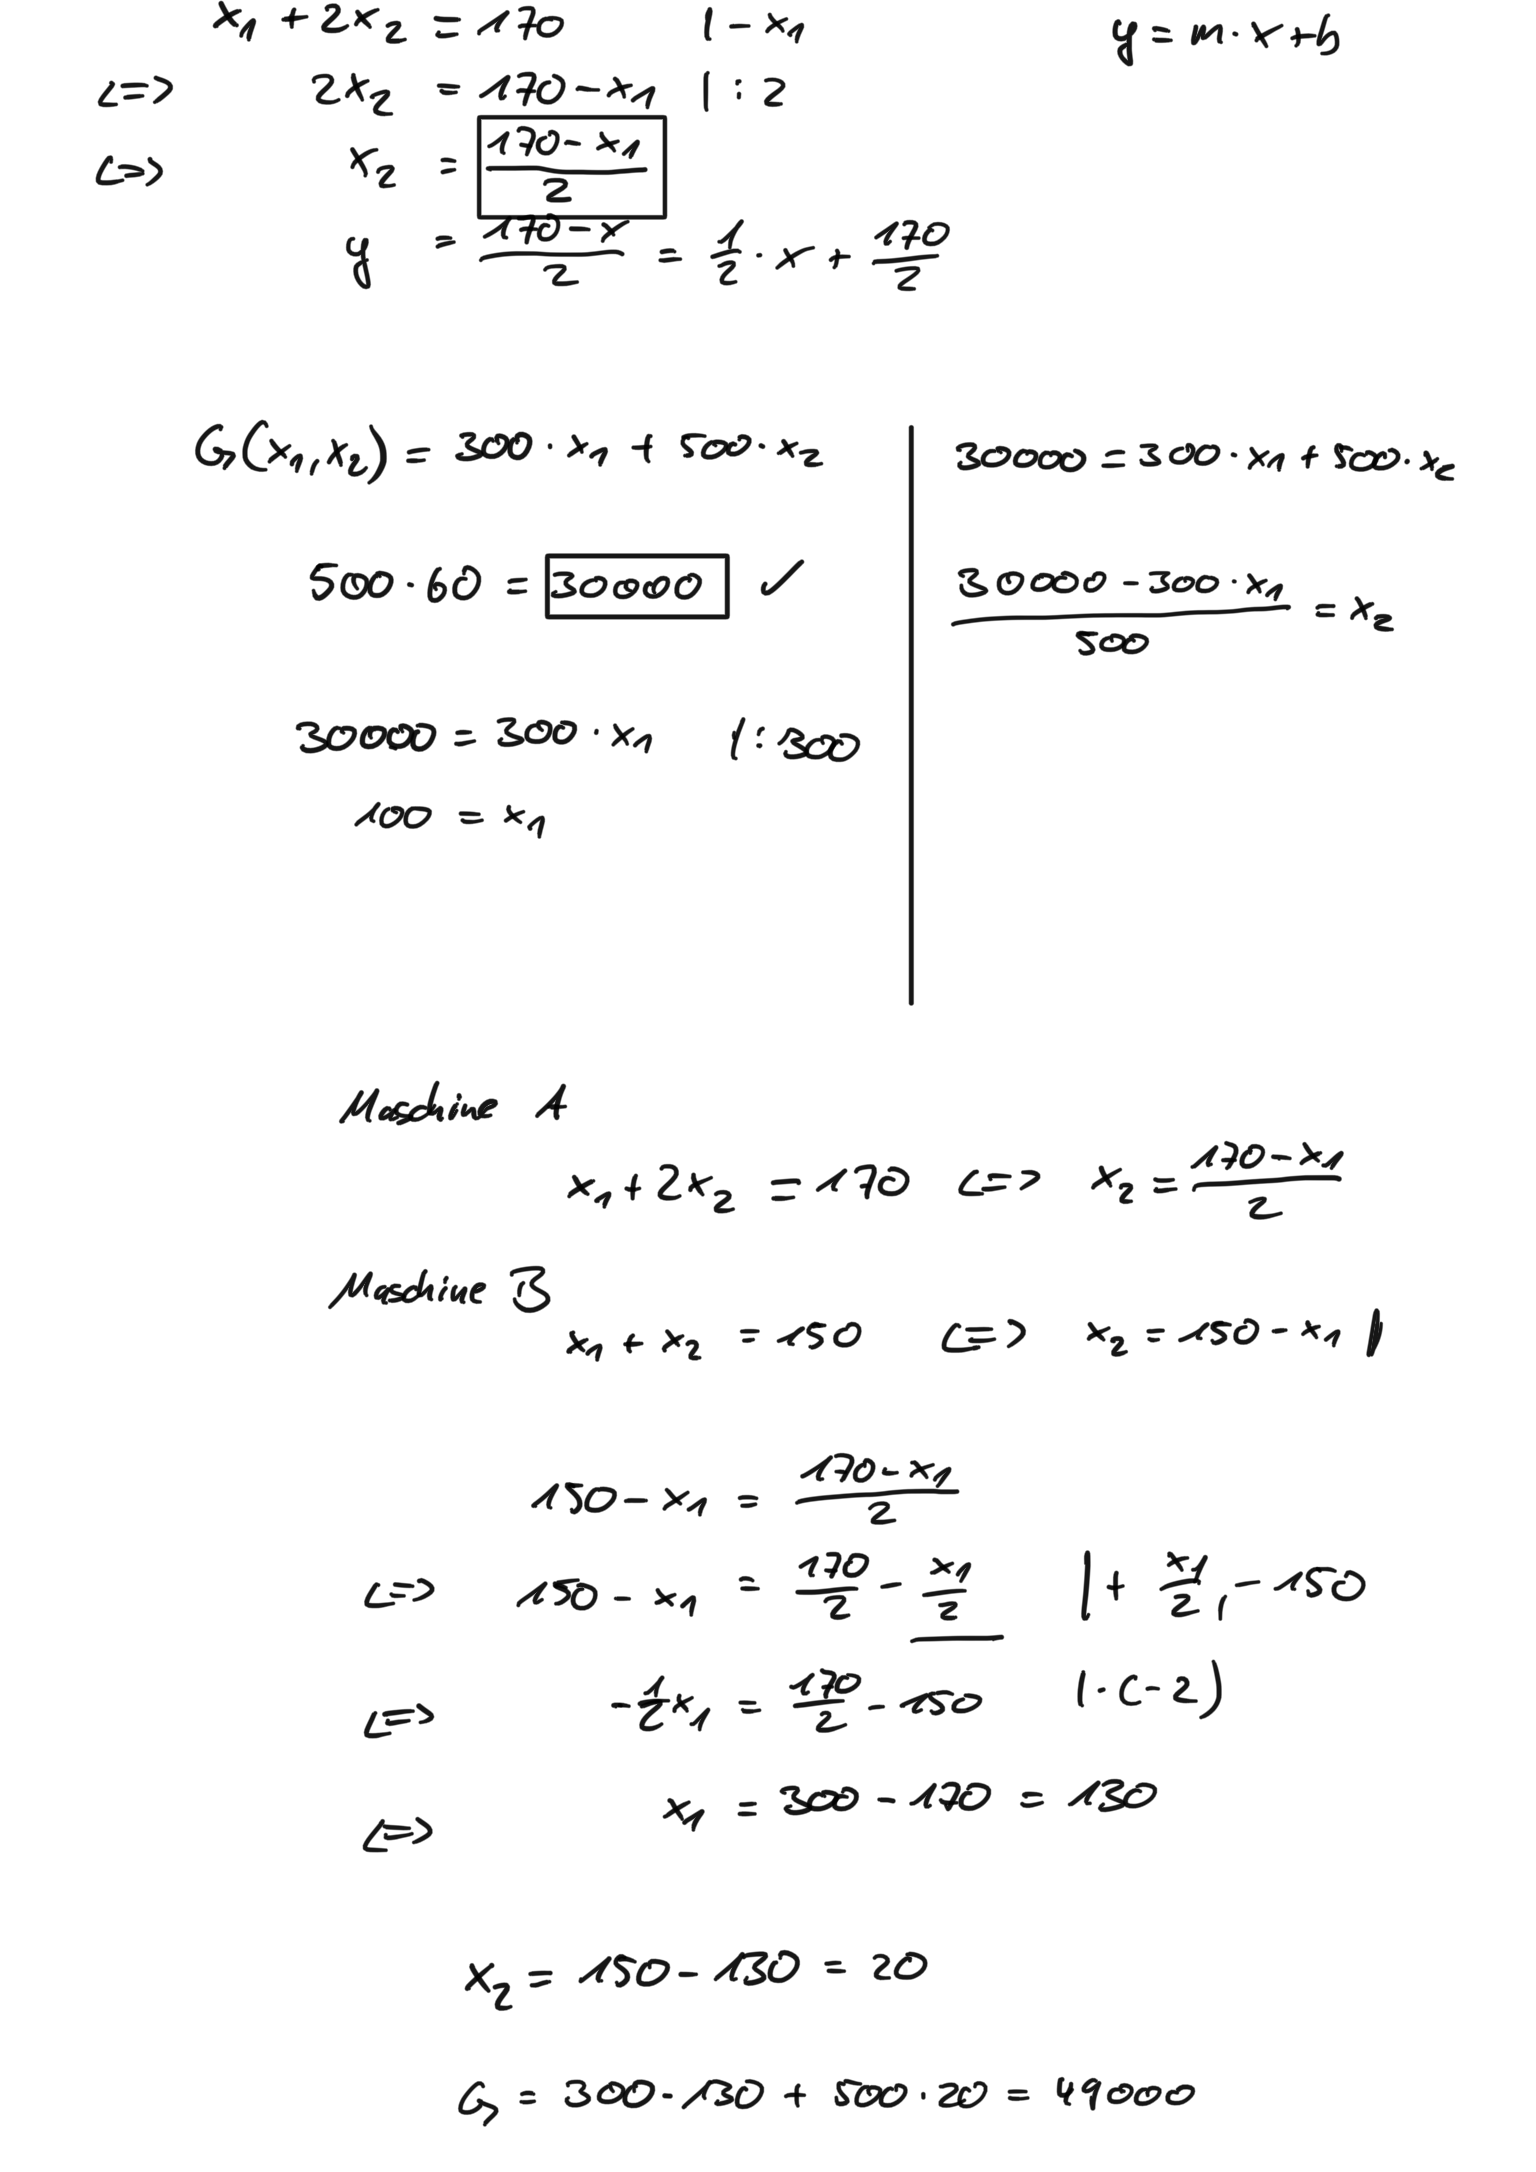 x₁ + 2x₂ = 170 | - x₁ y = m · x + b
<=> 2x₂ = 170 - x₁ | : 2
<=> x₂ = (170 - x₁)/2
y = (170 - x)/2 = 1/2 · x + 170/2
G(x₁, x₂) = 300 · x₁ + 500 · x₂
500 · 60 = 30000 ✓
30000 = 300 · x₁ | : 300
100 = x₁
30000 = 300 · x₁ + 500 · x₂
(30000 - 300 · x₁)/500 = x₂
Maschine A
x₁ + 2x₂ = 170 <=> x₂ = (170 - x₁)/2
Maschine B
x₁ + x₂ = 150 <=> x₂ = 150 - x₁
150 - x₁ = (170 - x₁)/2
<=> 150 - x₁ = 170/2 - x₁/2 | + x₁/2, - 150
<=> -1/2 x₁ = 170/2 - 150 | · (-2)
<=> x₁ = 300 - 170 = 130
x₂ = 150 - 130 = 20
G = 300 · 130 + 500 · 20 = 49000